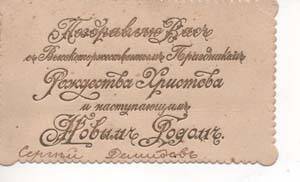 Поздравляю Васъ
съ Высокоторжественнымъ Праздникомъ
Рождества Христова
и наступающимъ
Новымъ Годомъ.
Сергѣй Демидовъ